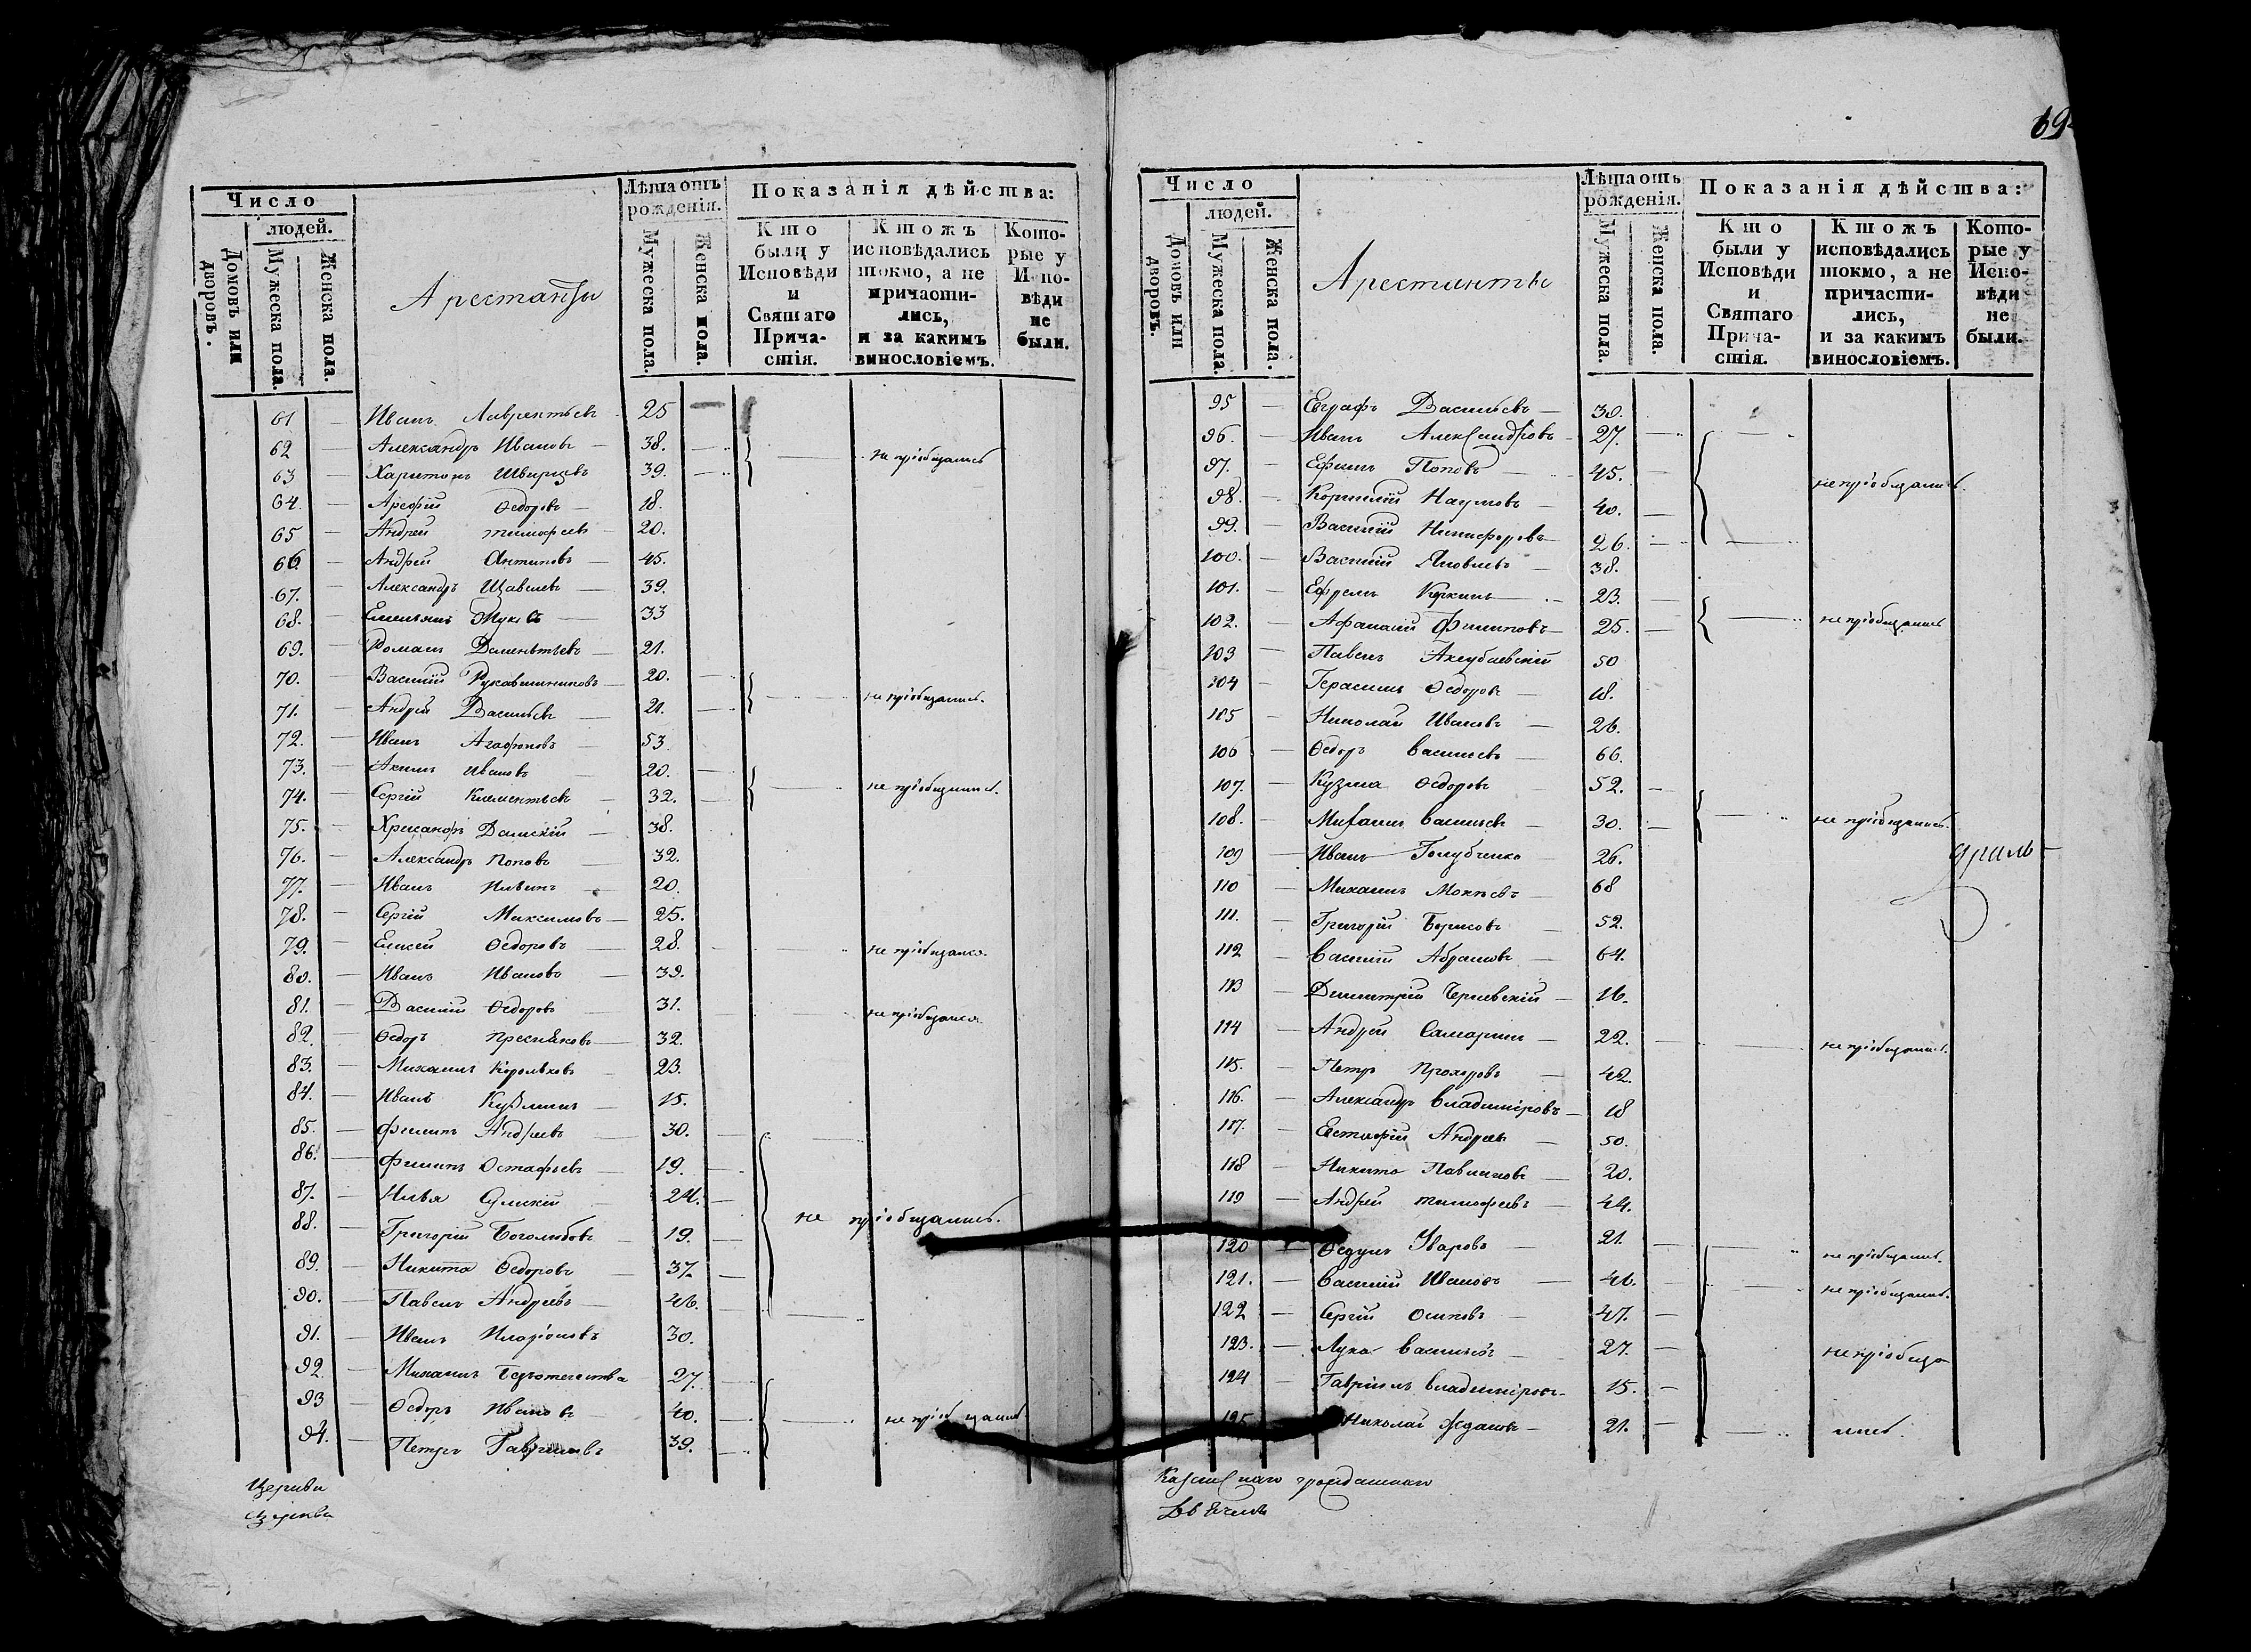 69
Число
людей.
Домовъ или дворовъ.
Мужеска пола.
Женска пола.
Арестанты
Лѣта отъ рожденія.
Мужеска пола.
Женска пола.
Показанія дѣйства:
Кто были у Исповѣди и Святаго Прича-стія.
Ктожъ исповѣдались токмо, а не причасти-лись, и за какимъ винословіемъ.
Кото-рые у Испо-вѣди не были.
61 — Иванъ Лаврентьевъ 25 —
62 — Александръ Ивановъ — 38. — не пріобщались
63 — Харитонъ 39. —
64. — Арефій Ѳедоровъ — 18.
65 — Андрей тимофеевъ — 20.
66 — Андрей Антиповъ — 45.
67. — Александръ Щавелевъ — 39.
68. — Емельянъ — 33
69. — Романъ Дементьевъ — 21.
70. — Василій Рукавишниковъ — 20. — не пріобщались.
71. — Андрей Васильевъ — 21. —
72. — Иванъ Агафоновъ — 53.
73. — Акимъ Ивановъ — 20. — не пріобщались.
74. — Сергій Климентьевъ — 32. —
75. — Хрисанфъ Дамскій — 38.
76. — Александръ Поповъ — 32.
77. — Иванъ 20.
78. — Сергій Максимовъ — 25.
79. — Елисей Ѳедоровъ — 28. — не пріобщался.
80. — Иванъ Ивановъ — 39.
81. — Василій Ѳедоровъ — 31. — не пріобщался
82. — Ѳедоръ Пресняковъ — 32.
83. — Михаилъ Корольковъ — 23.
84. — Иванъ — 15.
85. — Филипъ Андреевъ — 30. —
86. — Филипъ Остафьевъ — 19. —
87. — Илья 24. —
88. — Григорій Боголюбовъ — 19. — не пріобщались.
89. — Никита Ѳедоровъ — 37. —
90. — Павелъ Андреевъ — 46. —
91. — Иванъ Иларіоновъ 30.
92. — Михаилъ Безотечества 27. —
93 — Ѳедоръ Ивановъ 40. — не пріобщались.
94. — Петръ Гавриловъ 39. —
Церкви
Число
людей.
Домовъ или дворовъ.
Мужеска пола.
Женска пола.
Арестанты
Лѣта отъ рожденія.
Мужеска пола.
Женска пола.
Показанія дѣйства:
Кто были у Исповѣди и Святаго Прича-стія.
Ктожъ исповѣдались токмо, а не причасти-лись, и за какимъ винословіемъ.
Кото-рые у Испо-вѣди не были.
95 — Евграфъ Васильевъ — 30.
96. — Иванъ Александровъ — 27. —
97. — Ефимъ Поповъ — 45. не пріобщались.
98. — Корнилій Наумовъ — 40. —
99. — Василій Никифоровъ — 26. —
100. — Василій Яковлевъ — 38.
101. — Ефремъ — 23. —
102. — Афанасій Филиповъ — 25. — не пріобщались
103 — Павелъ 50
104 — Герасимъ Ѳедоровъ — 18.
105 — Николай Ивановъ — 26.
106 — Ѳедоръ Васильевъ — 66.
107. — Кузма Ѳедоровъ 52. —
108. — Михаилъ Васильевъ — 30. — не пріобщались.
109 — Иванъ Голубченко — 26.
110 — Михаилъ Мокѣевъ — 68
111. — Григорій Борисовъ — 52.
112 — Василій Абрамовъ — 64.
113 — Димитрій — 16.
114 — Андрей Самаринъ — 22. — не пріобщались.
115. — Петръ Прохоровъ — 42.
116. — Александръ Владиміровъ — 18
117. — Евстафій Андреевъ — 50.
118 — Никита Павлиновъ — 20.
119 — Андрей тимофеевъ — 44.
120 — Ѳедулъ Уваровъ — 21. — не пріобщались.
121. — Василій Ивановъ — 46. — не пріобщались.
122 — Сергій Осиповъ — 47. —
123. — Лука Васильевъ — 27. — не пріобща
124 — Гавріилъ Владиміровъ — 15. —
125 Николай Ждановъ — 21. — лись.